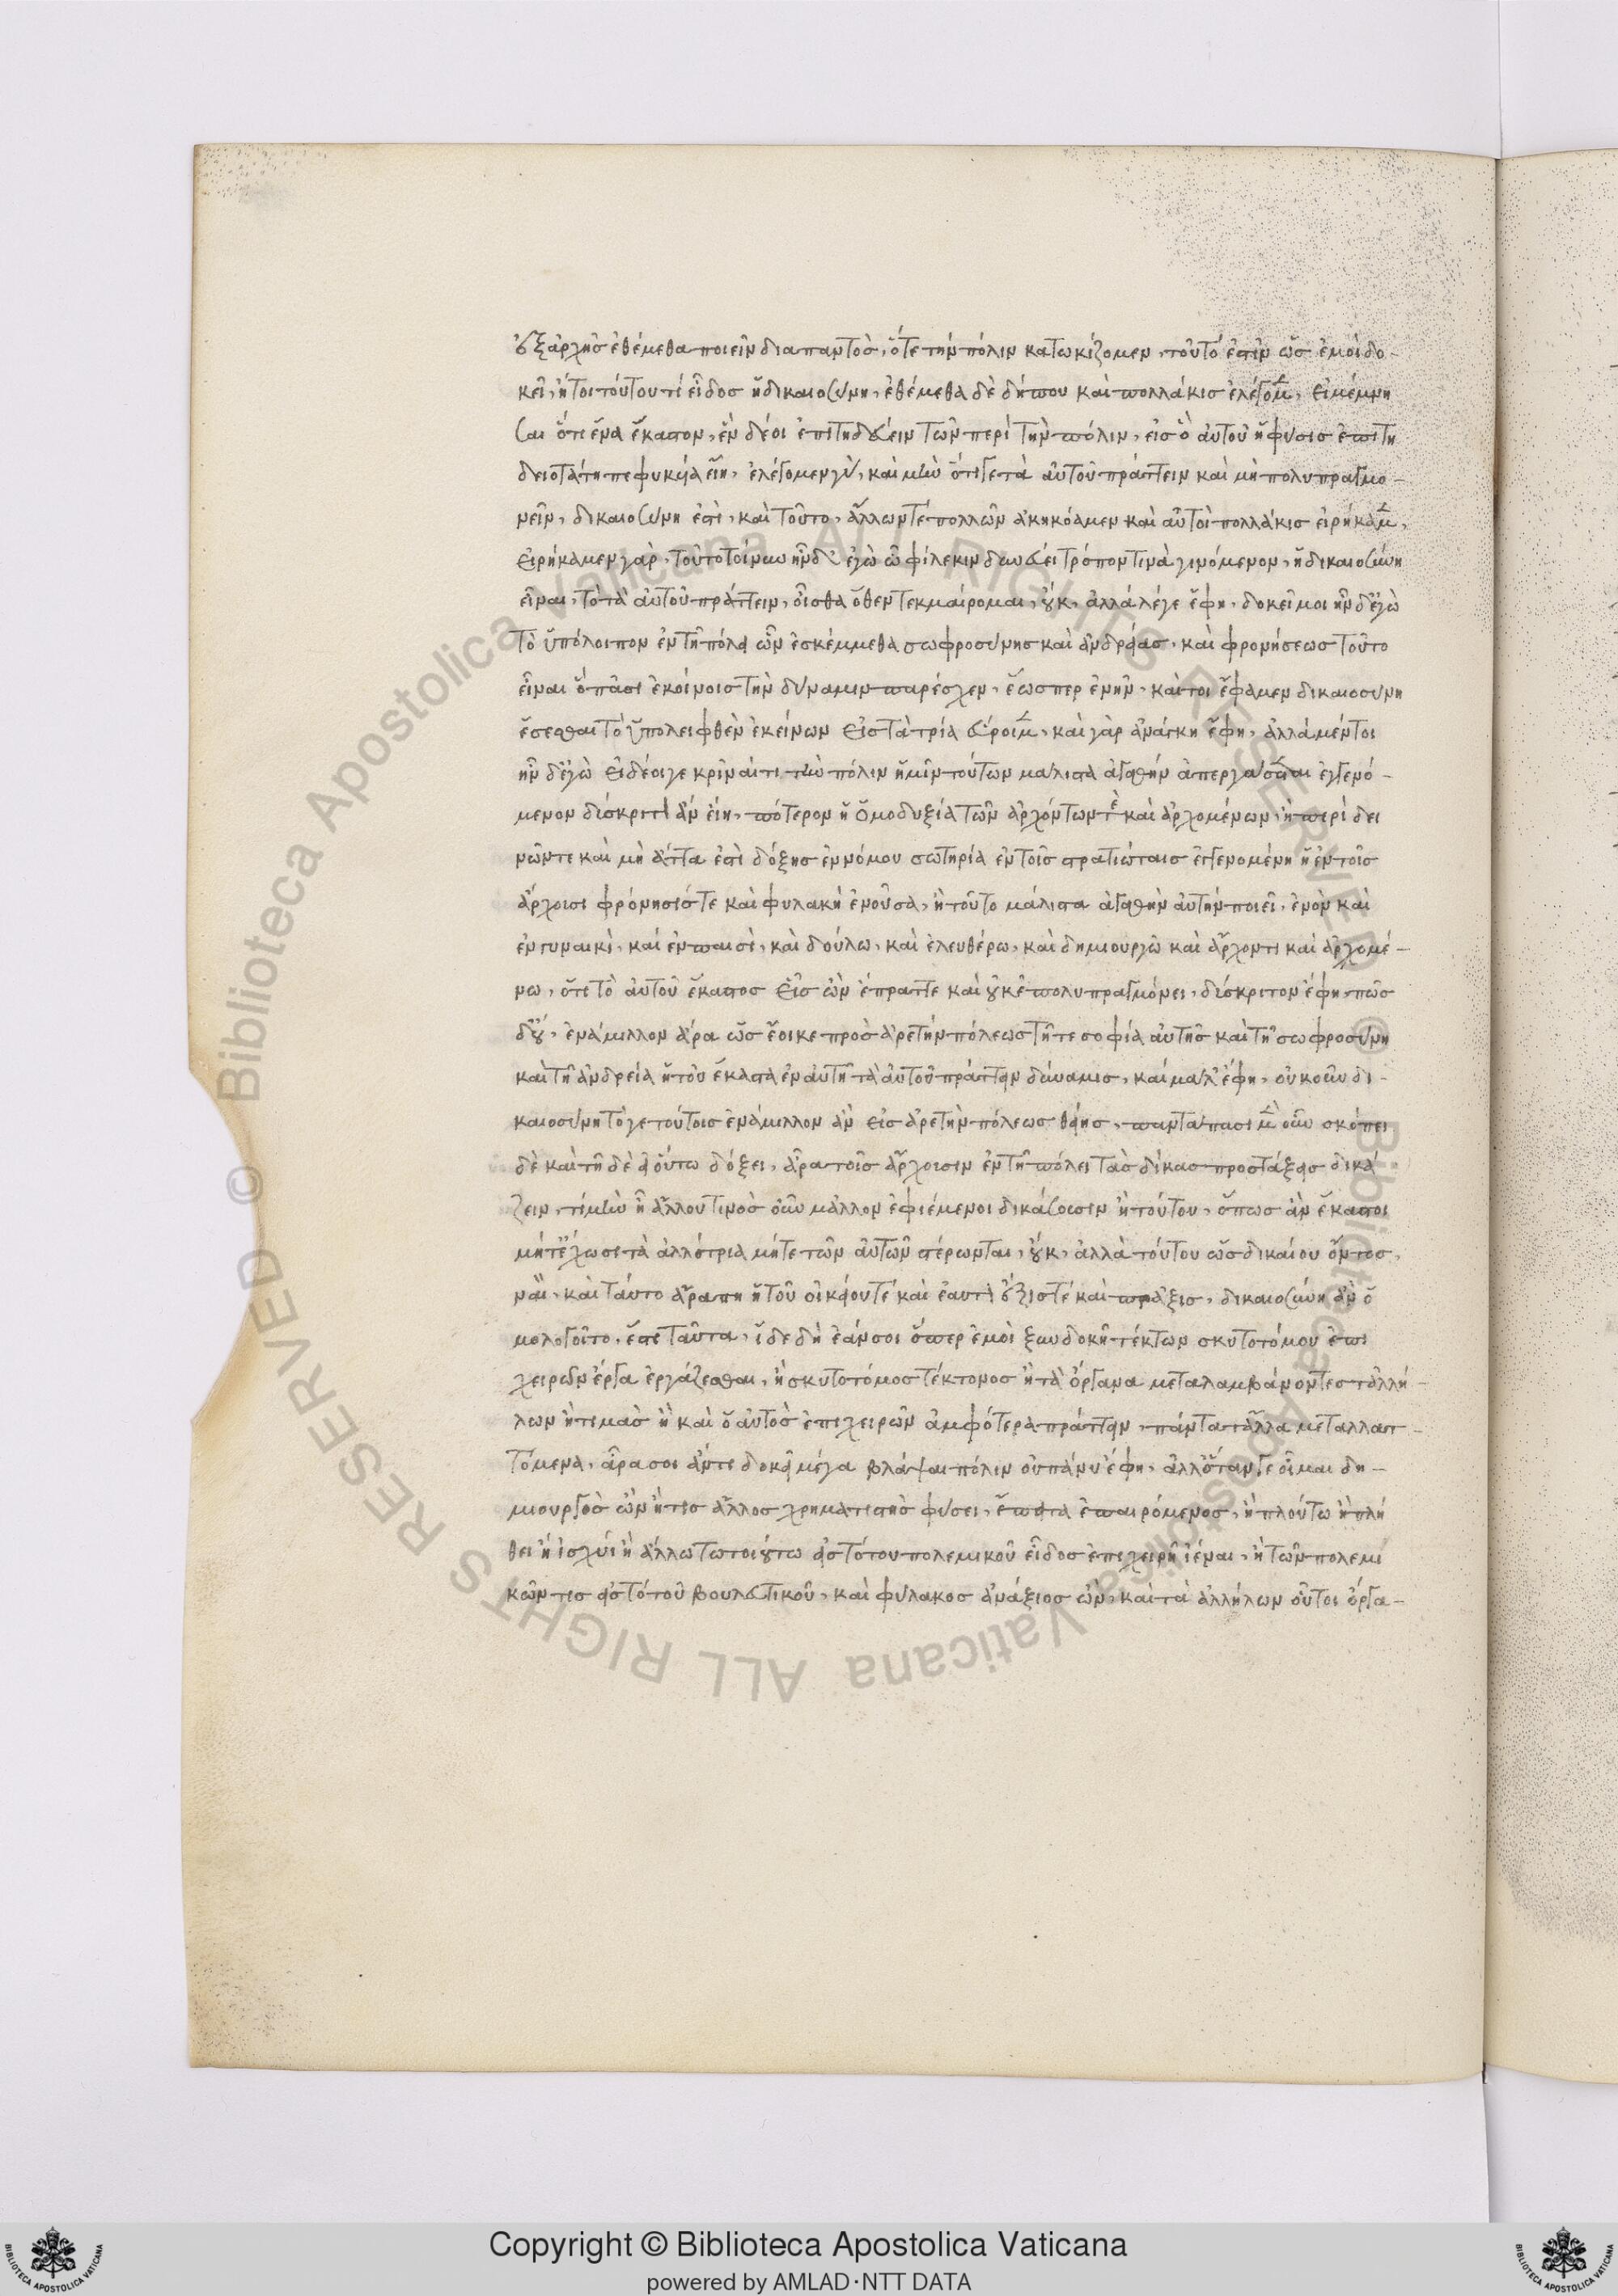 ἐξαρχῆσ ἐθέμεθα ποιεῖν διαπαντὸσ, ὅτε τὴν πόλιν κατωκίζομεν, τοῦτό ἐστὶν ὡσ ἐμοὶ δο-
κεῖ, ἤτοι τούτου τί εἶδοσ ἡ δικαιοσύνη, ἐθέμεθα δὲ δήπου καὶ πολλάκισ ἐλέγομεν, εἰ μέμνη
σαι ὅτι ἕνα ἕκαστον, ἓν δέοι ἐπιτηδεύειν τῶν περὶ τὴν πόλιν, εἰσ ὃ αὐτοῦ ἡ φύσισ ἐπιτη
δειοτάτη πεφυκυῖα εἴη, ἐλέγομεν γὰρ, καὶ μὴν ὅτι γε τὰ αὑτοῦ πράττειν καὶ μὴ πολυπραγμο-
νεῖν, δικαιοσύνη ἐστὶ, καὶ τοῦτο, ἄλλων τὲ πολλῶν ἀκηκόαμεν καὶ αὐτοὶ πολλάκισ εἰρήκαμεν,
εἰρήκαμεν γὰρ, τοῦτο τοίνυν ἦν δ' ἐγὼ ὦ φίλε κινδυνεύει τρόπον τινὰ γινόμενον, ἡ δικαιοσύνη
εἶναι, τὸ τὰ αὑτοῦ πράττειν, οἶσθα ὅθεν τεκμαίρομαι, οὐκ, ἀλλὰ λέγε ἔφη, δοκεῖ μοι ἦν δ' ἐγὼ
τὸ ὑπόλοιπον ἐν τῆ πόλει ὧν ἐσκέμμεθα σωφροσύνησ καὶ ἀνδρείασ, καὶ φρονήσεωσ τοῦτο
εἶναι ὃ πᾶσι ἐκοίνοισ τὴν δύναμιν παρέσχεν, ἕωσπερ ἐνῆν, καίτοι ἔφαμεν δικαιοσύνη
ἔσεσθαι τὸ ὑπολειφθὲν ἐκείνων εἰσ τὰ τρία εὕροιμεν, καὶ γὰρ ἀνάγκη ἔφη, ἀλλὰ μέντοι
ἦν δ' ἐγὼ εἰ δέοι γε κρῖναι τι τὴν πόλιν ἡμῖν τούτων μάλιστα ἀγαθὴν ἀπεργάσεται ἐγγενό-
μενον δύσκριτὶ ἂν εἴη, πότερον ἡ ὁμοδυξία τῶν ἀρχόντων τὲ καὶ ἀρχομένων, ἢ περὶ δει
νῶν τε καὶ μὴ ἄττα ἐστὶ δόξησ ἐννόμου σωτηρία ἐν τοῖσ στρατιώταισ ἐγγενομένη ἢ ἐν τοῖσ
ἄρχουσι φρόνησίσ τε καὶ φυλακὴ ἐνοῦσα, ἢ τοῦτο μάλιστα ἀγαθὴν αὐτὴν ποιεῖ, ἐνὸν καὶ
ἐν γυναικὶ, καὶ ἐν παισὶ, καὶ δούλω, καὶ ἐλευθέρω, καὶ δημιουργῶ καὶ ἄρχοντι καὶ ἀρχομέ-
νω, ὅτι τὸ αὑτοῦ ἕκαστοσ εἷσ ὢν ἔπραττε καὶ οὐκ ἐπολυπραγμόνει, δύσκριτον ἔφη, πῶσ
δ' οὔ, ἐνάμιλλον ἄρα ὡσ ἔοικε πρὸσ ἀρετὴν πόλεωσ τῆ τε σοφία αὐτῆσ καὶ τῆ σωφροσύνη
καὶ τῆ ἀνδρεία ἡ τοῦ ἕκαστα ἐν αὐτῆ τὰ αὑτοῦ πράττειν δύναμισ, καὶ μάλ' ἔφη, οὐκοῦν δι-
καιοσύνη τόγε τούτοισ ἐνάμιλλον ἂν εἰσ ἀρετὴν πόλεωσ θείησ, πανταπασι μὲν οὖν σκόπει
δὲ καὶ τῆδε εἰ οὕτω δόξει, ἆρα τοῖσ ἄρχουσιν ἐν τῆ πόλει τὰσ δίκασ προστάξεισ δικά
ζειν, τί μὴν ἢ ἄλλου τινὸσ οὖν μᾶλλον ἐφιέμενοι δικάσουσιν ἢ τούτου, ὅπωσ ἂν ἕκαστοι
μήτ' ἔχωσι τὰ ἀλλότρια μήτε τῶν αὑτῶν στέρωνται, οὐκ, ἀλλὰ τούτου ὡσ δικαίου ὄντοσ,
ναὶ, καὶ ταύτο ἄρα πη ἡ τοῦ οἰκείου τὲ καὶ ἑαυτὶ ἕξισ τὲ καὶ πρᾶξισ, δικαιοσύνη ἂν ὁ
μολογοῖτο, ἔστι ταῦτα, ἴδε δὴ ἐάν σοι ὅπερ ἐμοὶ ξυνδοκῆ τέκτων σκυτοτόμου ἐπι
χειρῶν ἔργα ἐργάζεσθαι, ἢ σκυτοτόμοσ τέκτονοσ ἢ τὰ ὄργανα μεταλαμβάνοντεσ τ' ἀλλή-
λων ἢ τιμασ ἢ καὶ ὁ αὐτὸσ ἐπιχειρῶν ἀμφότερα πράττειν, πάντα τἆλλα μεταλλατ-
τόμενα, ἆρα σοι ἄν τι δοκεῖ μέγα βλάψαι πόλιν οὐπάνυ ἔφη, ἀλλ' ὅταν γε οἶμαι δη-
μιουργὸσ ὢν ἤ τισ ἄλλοσ χρηματιστὴσ φύσει, ἔπειτα ἐπαιρόμενοσ, ἢ πλούτω ἢ πλή
θει ἢ ἰσχύι ἢ ἄλλω τω τοιούτω εἰσ τὸ του πολεμικοῦ εἶδοσ ἐπιχειρῆ ἰέναι, ἢ τῶν πολεμι
κῶν τισ εἰσ τὸ τοῦ βουλευτικοῦ, καὶ φύλακοσ ἀνάξιοσ ὢν, καὶ τὰ ἀλλήλων οὗτοι ὄργα-
Copyright © Biblioteca Apostolica Vaticana
powered by AMLAD·NTT DATA
BIBLIOTECA APOSTOLICA VATICANA
BIBLIOTECA APOSTOLICA VATICANA
© Biblioteca Apostolica Vaticana ALL RIGHTS RESERVED © Biblioteca Apostolica Vaticana ALL RIGHTS RESERVED